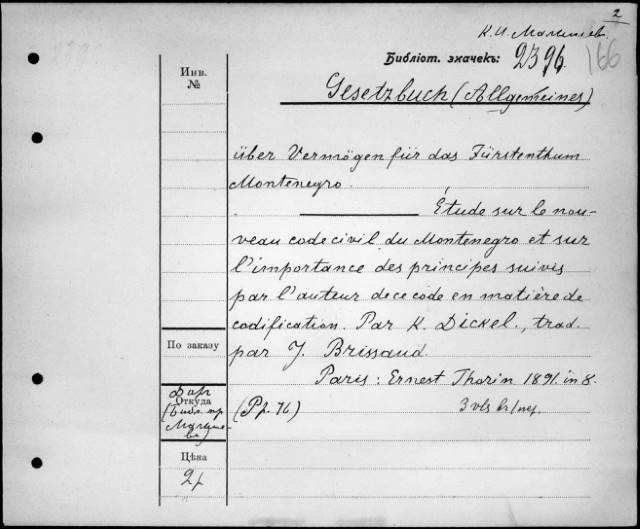 2
К. И. Малышев.
Библіот. значекъ: 2396. 166
Инв.
№
Gesetzbuch (Allgemeines)
über Vermögen für das Fürstenthum
Montenegro.
Étude sur le nou-
veau code civil du Montenegro et sur
l'importance des principes suivis
par l'auteur de ce code en matière de
codification. Par K. Dickel., trad.
По заказу
par J. Brissaud.
Paris: Ernest Thorin 1891. in 8.
Дар
Откуда
(Библ. пр
Малыше-
ва)
(Pp. 76)
Цѣна
2 р